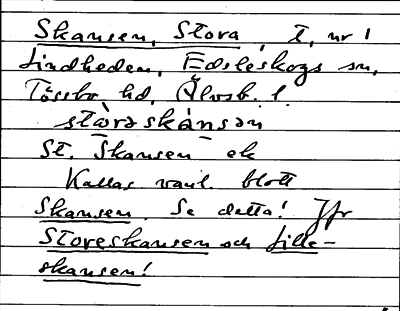 Skansen, Stora, t, nr 1
Lindheden, Edsleskogs sn,
Tössbo hd, Älvsb. l.
stòraskánsan
St. Skansen ek
Kallas vanl. blott
Skansen. Se detta! Jfr
Storeskansen och Lille-
skansen!